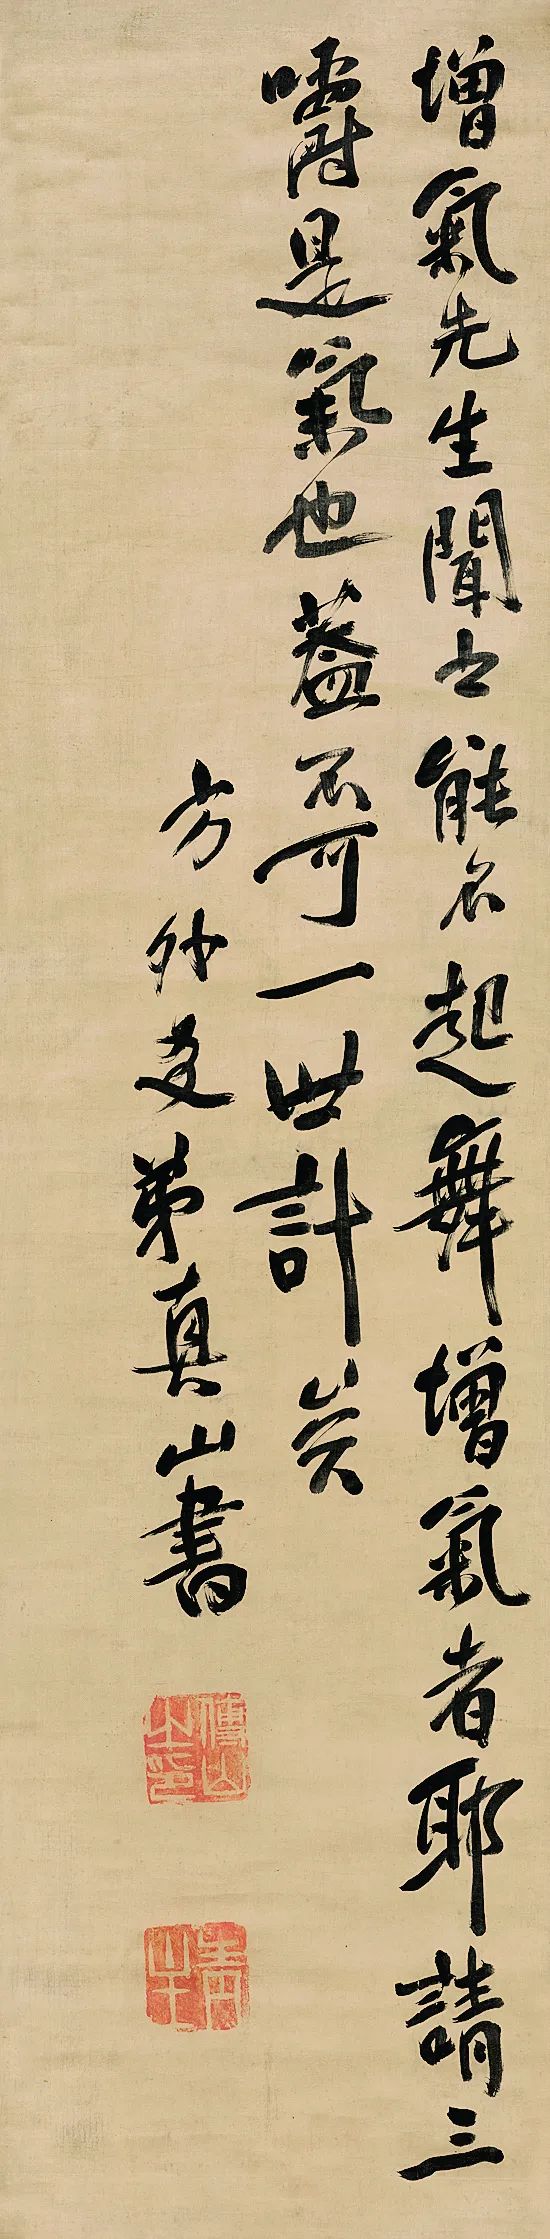 增氣先生聞之能不起舞增氣者耶請三
嚼是氣也蓋不可一世計矣
方外友弟真山書
傅山之印
青